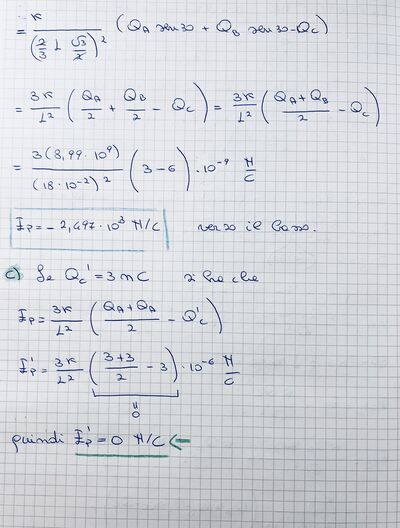 = K / (2/3 L √3/2)² (QA sen30 + QB sen30 - QC)
= 3K / L² (QA/2 + QB/2 - QC) = 3K / L² ((QA + QB)/2 - QC)
= 3(8,99 · 10⁹) / (18 · 10⁻²)² (3 - 6) · 10⁻⁹ N/C
EP = - 2,497 · 10³ N/C verso il basso.
c) Se QC' = 3 nC si ha che
EP = 3K / L² ((QA + QA)/2 - Q'C)
E'P = 3K / L² ((3+3)/2 - 3) · 10⁻⁶ N/C
=
0
quindi E'P = 0 N/C ←